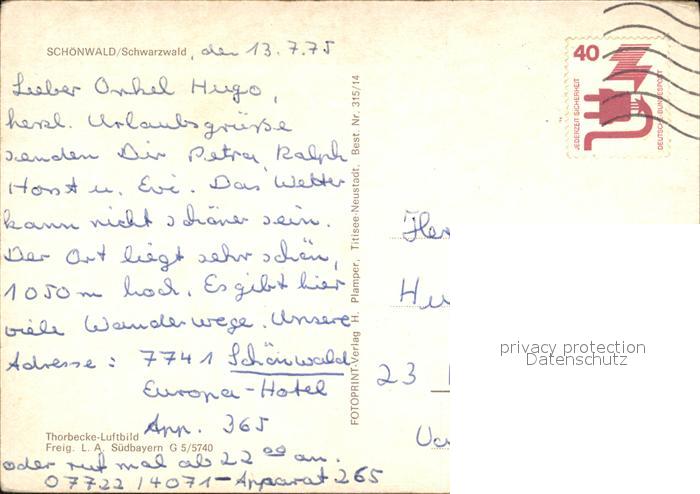 SCHÖNWALD/Schwarzwald, den 13.7.75
Lieber Onkel Hugo,
herzl. Urlaubsgrüsse
senden Dir Petra Ralph
Horst u. Evi. Das Wetter
kann nicht schöner sein.
Der Ort liegt sehr schön,
1050m hoch. Es gibt hier
viele Wanderwege. Unsere
Adresse: 7741 Schönwald
Europa-Hotel
App. 365
Thorbecke-Luftbild
Freig. L. A. Südbayern G 5/5740
oder ruf mal ab 22 00 an.
07722 / 4071 - Apparat 265
FOTOPRINT-Verlag H. Plamper, Titisee-Neustadt, Best. Nr. 315/14
40
JEDERZEIT SICHERHEIT
DEUTSCHE BUNDESPOST
23
privacy protection
Datenschutz